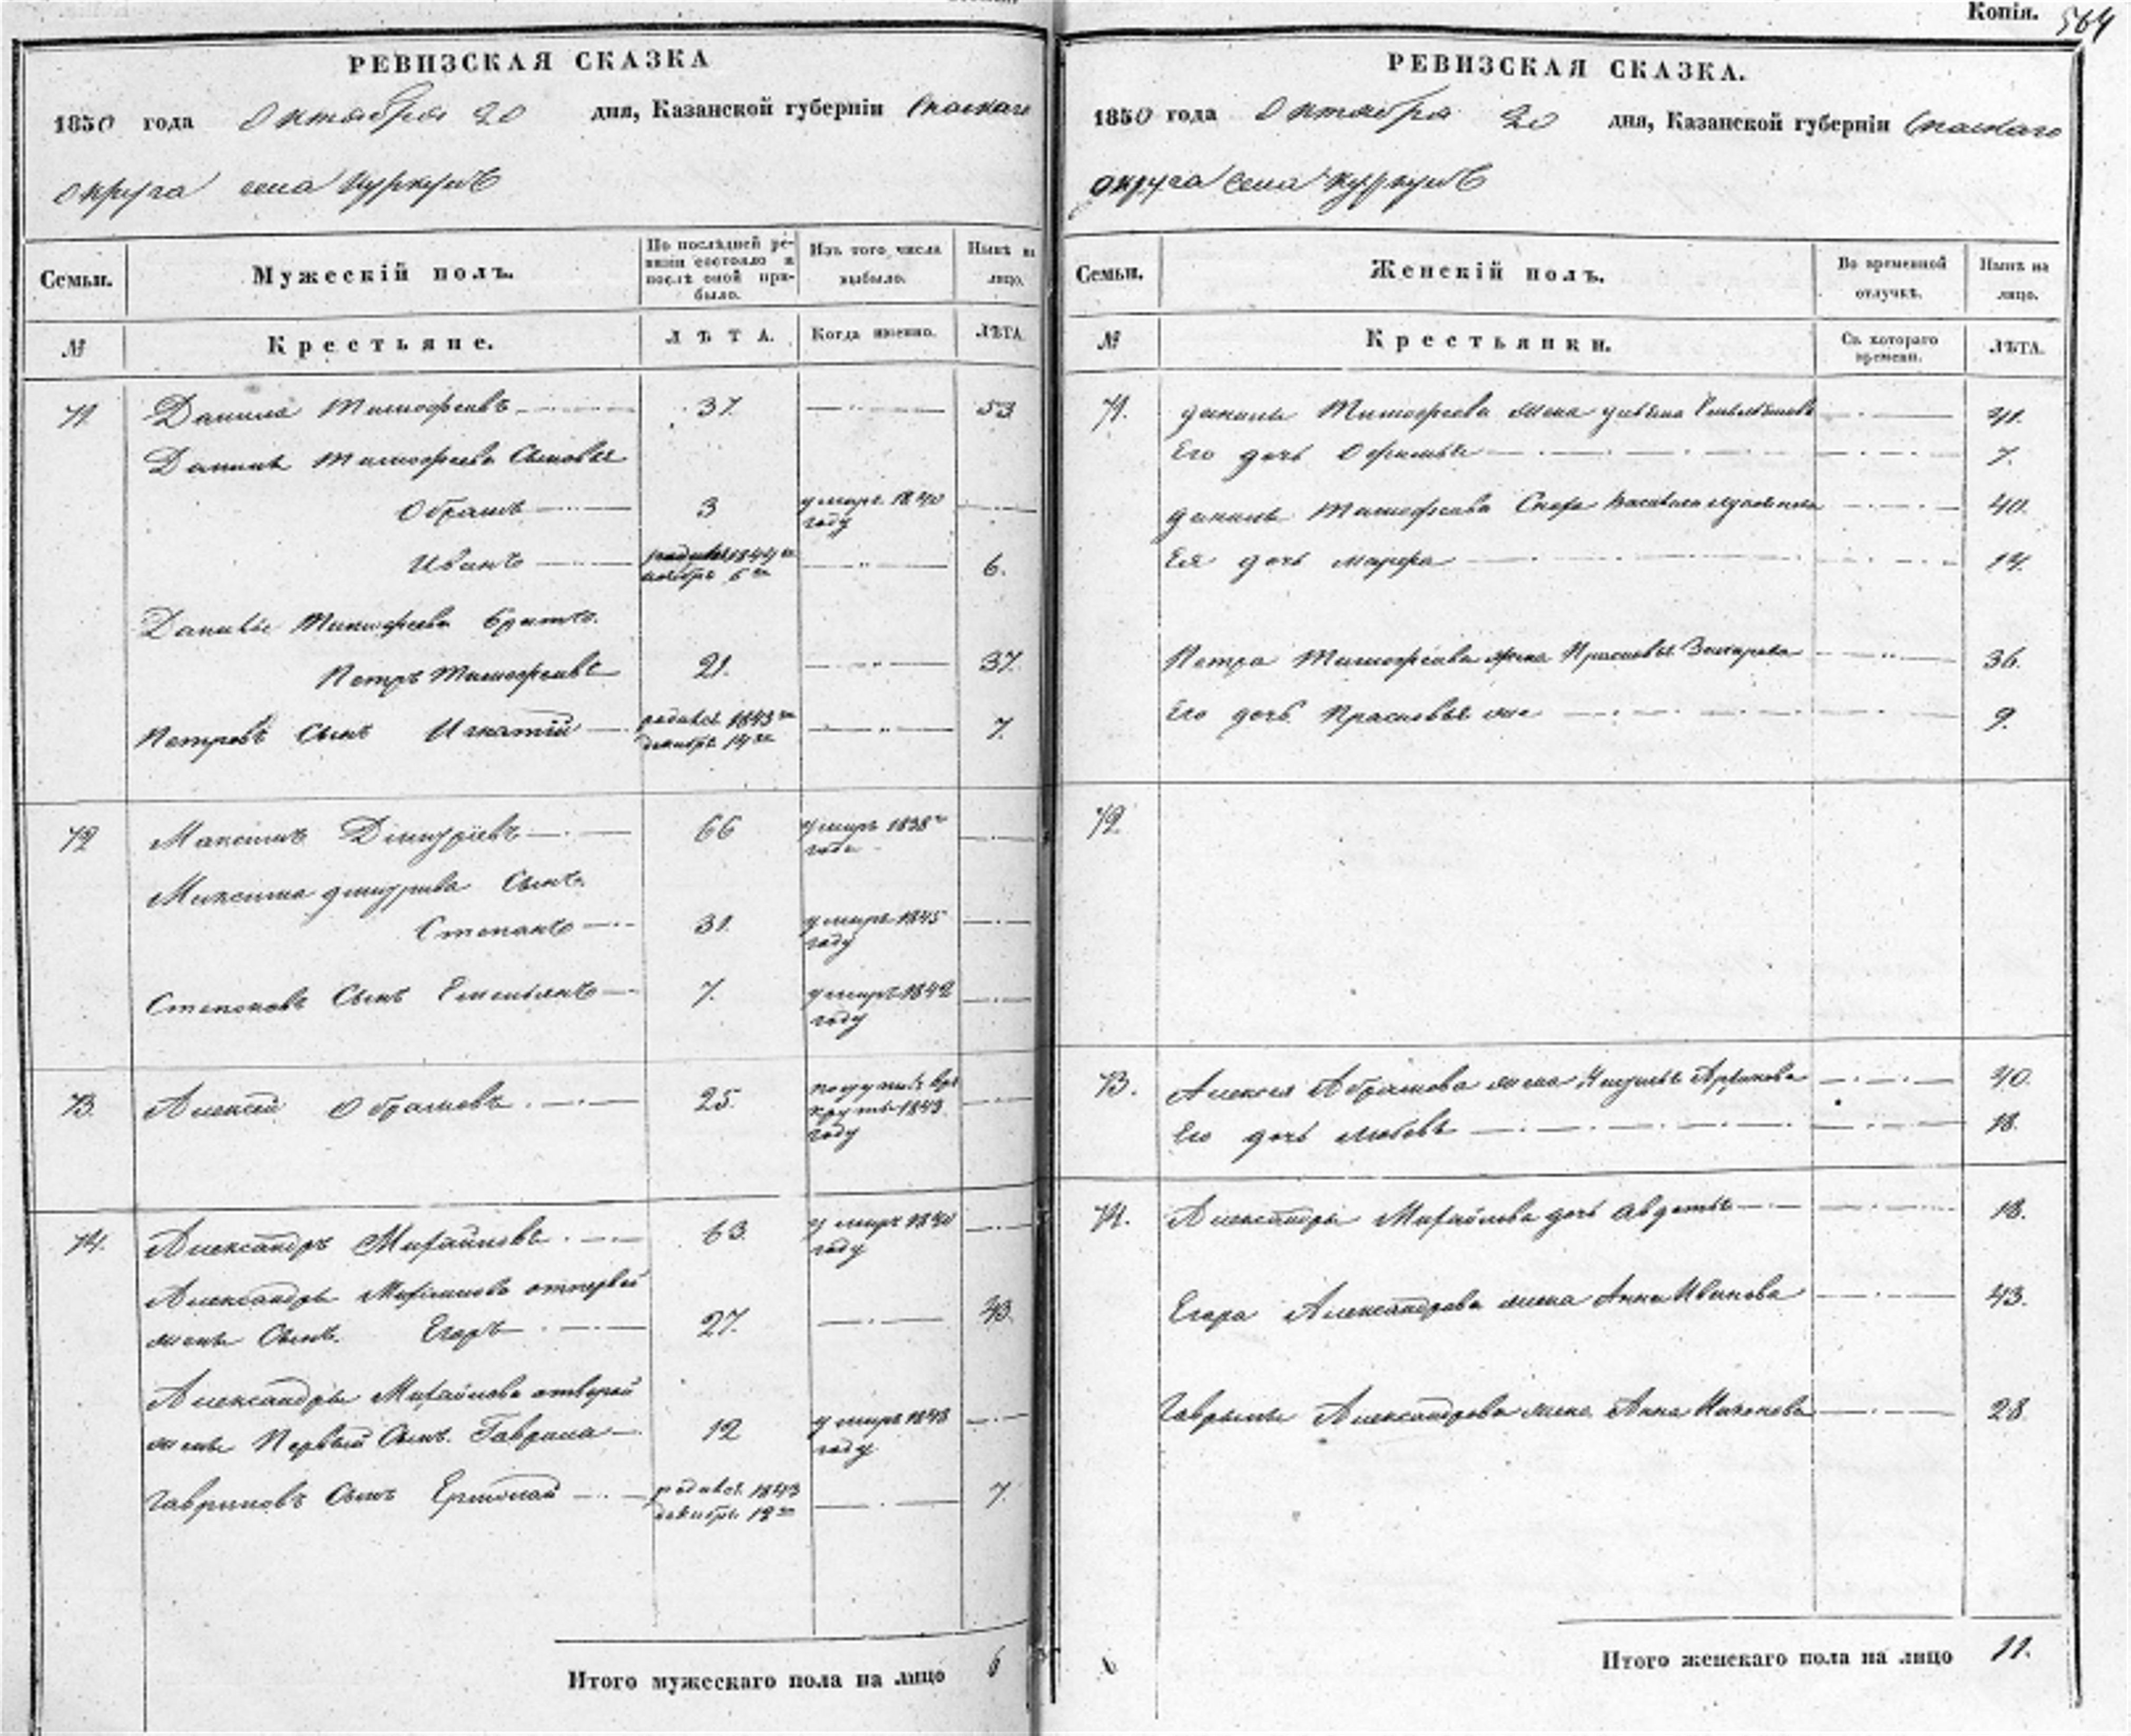 Копія. 564
РЕВИЗСКАЯ СКАЗКА
1850 года Октября 20 дня, Казанской губерніи Спаскаго
округа села
Семьи.
Мужескій полъ.
По послѣдней ре-
визіи состояло и
послѣ оной при-
было.
Изъ того числа
выбыло.
Нынѣ на
лицо.
№
Крестьяне.
ЛѢТА.
Когда именно.
ЛѢТА.
71. Данила Тимофеевъ 37. 53
Данилы Тимофеева Сыновья
Обрамъ 3 умеръ 1840
году
Иванъ родился 1844го
ноября 6. 
Данилы Тимофеева братъ.
Петръ Тимофеевъ 21. 37.
Петровъ Сынъ Игнатій родился 1843го 7.
декабря
72 Максимъ Дмитріевъ 66 умеръ 1838го
года
Максима дмитріева Сынъ
Степанъ 31. умеръ 1845
году
Степановъ Сынъ Емельянъ 7. умеръ 1842
году
73. Алексей Обрамовъ 25.
1843
году
74. Александръ Михайловъ 63. умеръ 1840
году
Александры Михайлова отпервой
жены Сынъ. Егоръ 27. 43.
Александры Михайлова отвторой
жены Первый Сынъ. Гаврила 12 умеръ 1848
году
Гавриловъ Сынъ Ермолай родился 1843 7.
декабря
Итого мужескаго пола на лицо 6
РЕВИЗСКАЯ СКАЗКА.
1850 года Октября 20 дня, Казанской губерніи Спаскаго
округа села
Семьи.
Женскій полъ.
Во временной
отлучкѣ.
Нынѣ на
лицо.
№
Крестьянки.
Съ котораго
времени.
ЛѢТА.
71. данилы Тимофеева жена 41.
Его дочь Офимья 7.
данилы Тимофеева Сноха 40.
Ея дочь марфа 14.
Петра Тимофеева жена Прасковья Захарова 36.
Его дочь Прасковья же 9.
72.
73. Алексея Абрамова жена 40.
Его дочь любовь 18.
74. Александры Михайлова дочь авдотья 18.
Егора Александрова жена Анна Иванова 43.
Гаврилы Александрова жена Анна 28.
Итого женскаго пола на лицо 11.